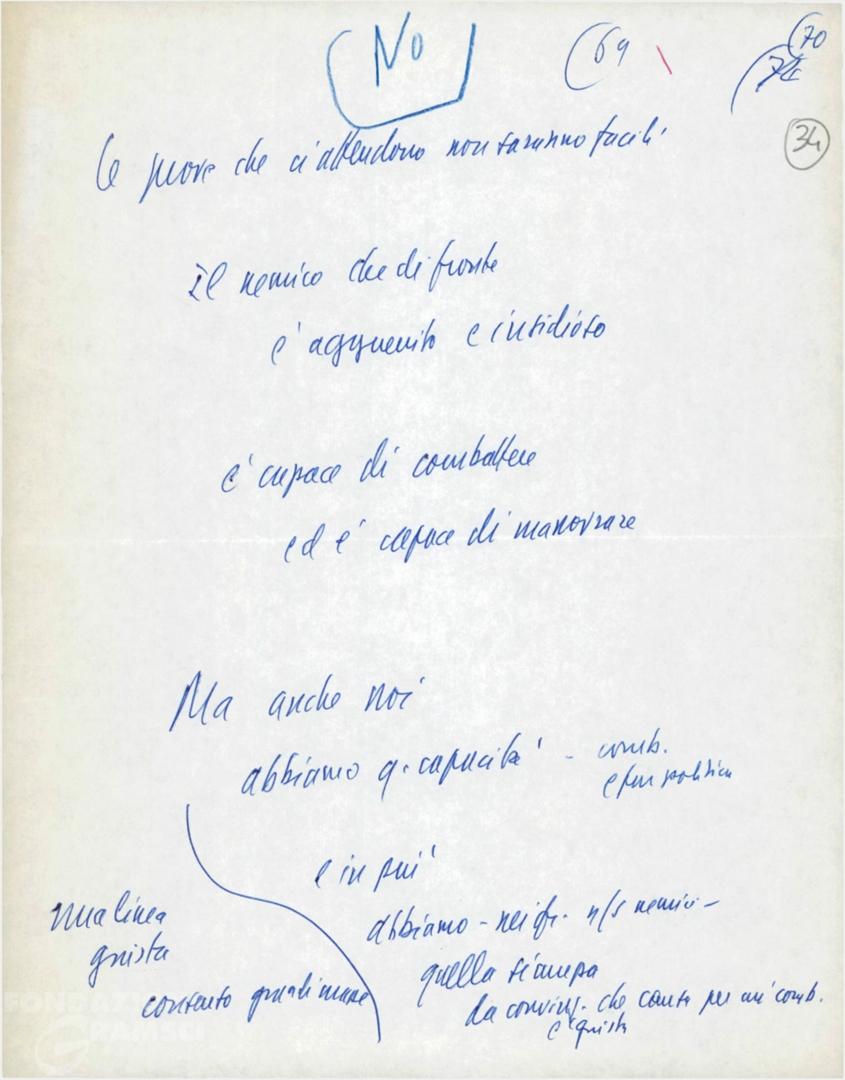 No
(69
(70
34
Le prove che ci attendono non saranno facili
Il nemico che di fronte
è agguerrito e insidioso
è capace di combattere
ed è capace di manovrare
Ma anche noi
abbiamo q. capacità - comb.
politica
e in più
abbiamo - nei n/s nemici -
una linea
giusta
quella
consenso
da che per cui comb.
è giusta
FONDAZIONE
GRAMSCI